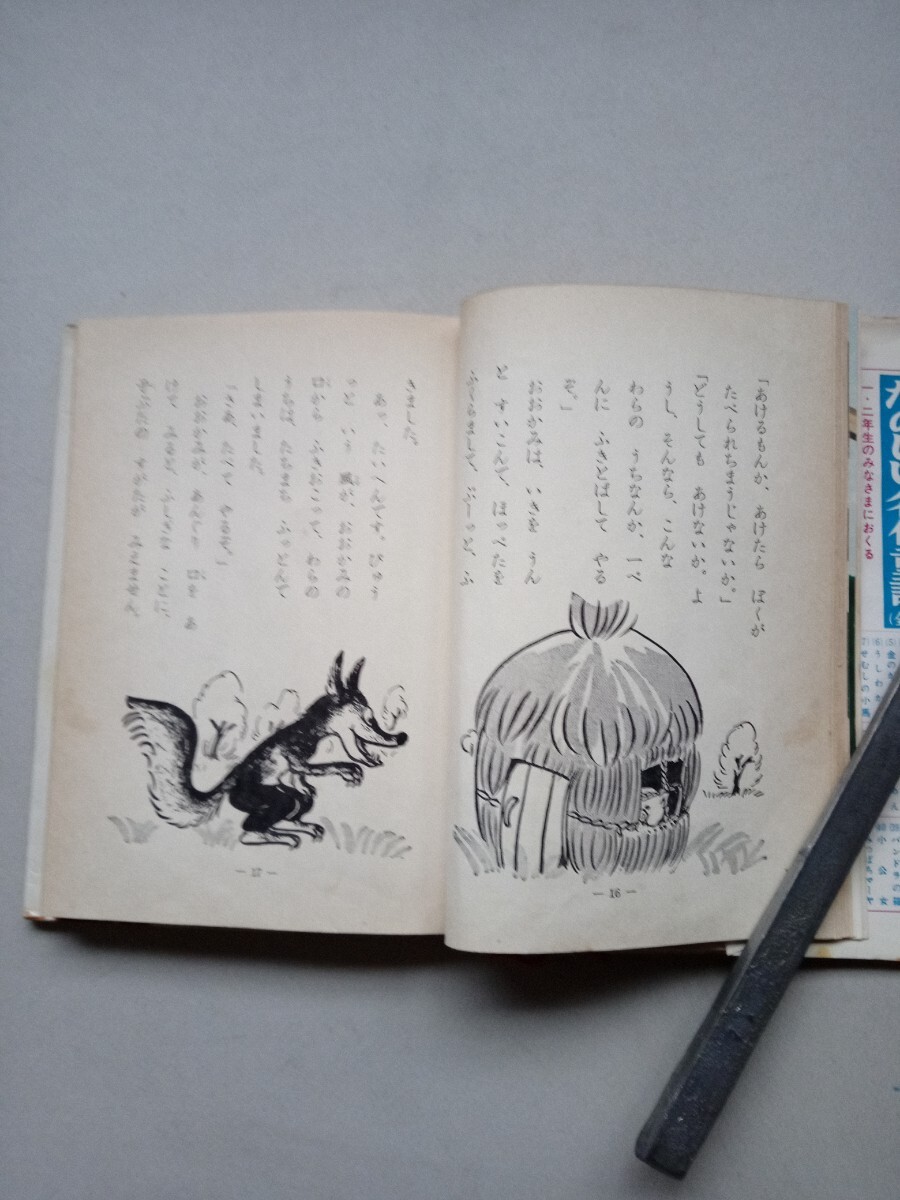 「あけるもんか、あけたら ぼくが
たべられちまうじゃないか。」
「どうしても あけないか。よ
うし、そんなら、こんな
わらの うちなんか、一ぺ
んに ふきとばして やる
ぞ。」
おおかみは、いきを うん
と すいこんで、ほっぺたを
ふくらまして、ぷーっと、ふ
— 16 —
きました。
あっ、たいへんです。びゅう
っと いう 風が、おおかみの
口から ふきおこって、わらの
うちは、たちまち ふっとんで
しまいました。
「さあ、たべて やるぞ。」
おおかみが、あんぐり 口を あ
けて、みると、ふしぎな ことに、
すがたが みえません。
— 17 —
一・二年生のみなさまにおくる
(5)
(6)
うしわか
せむしの小馬
小公女